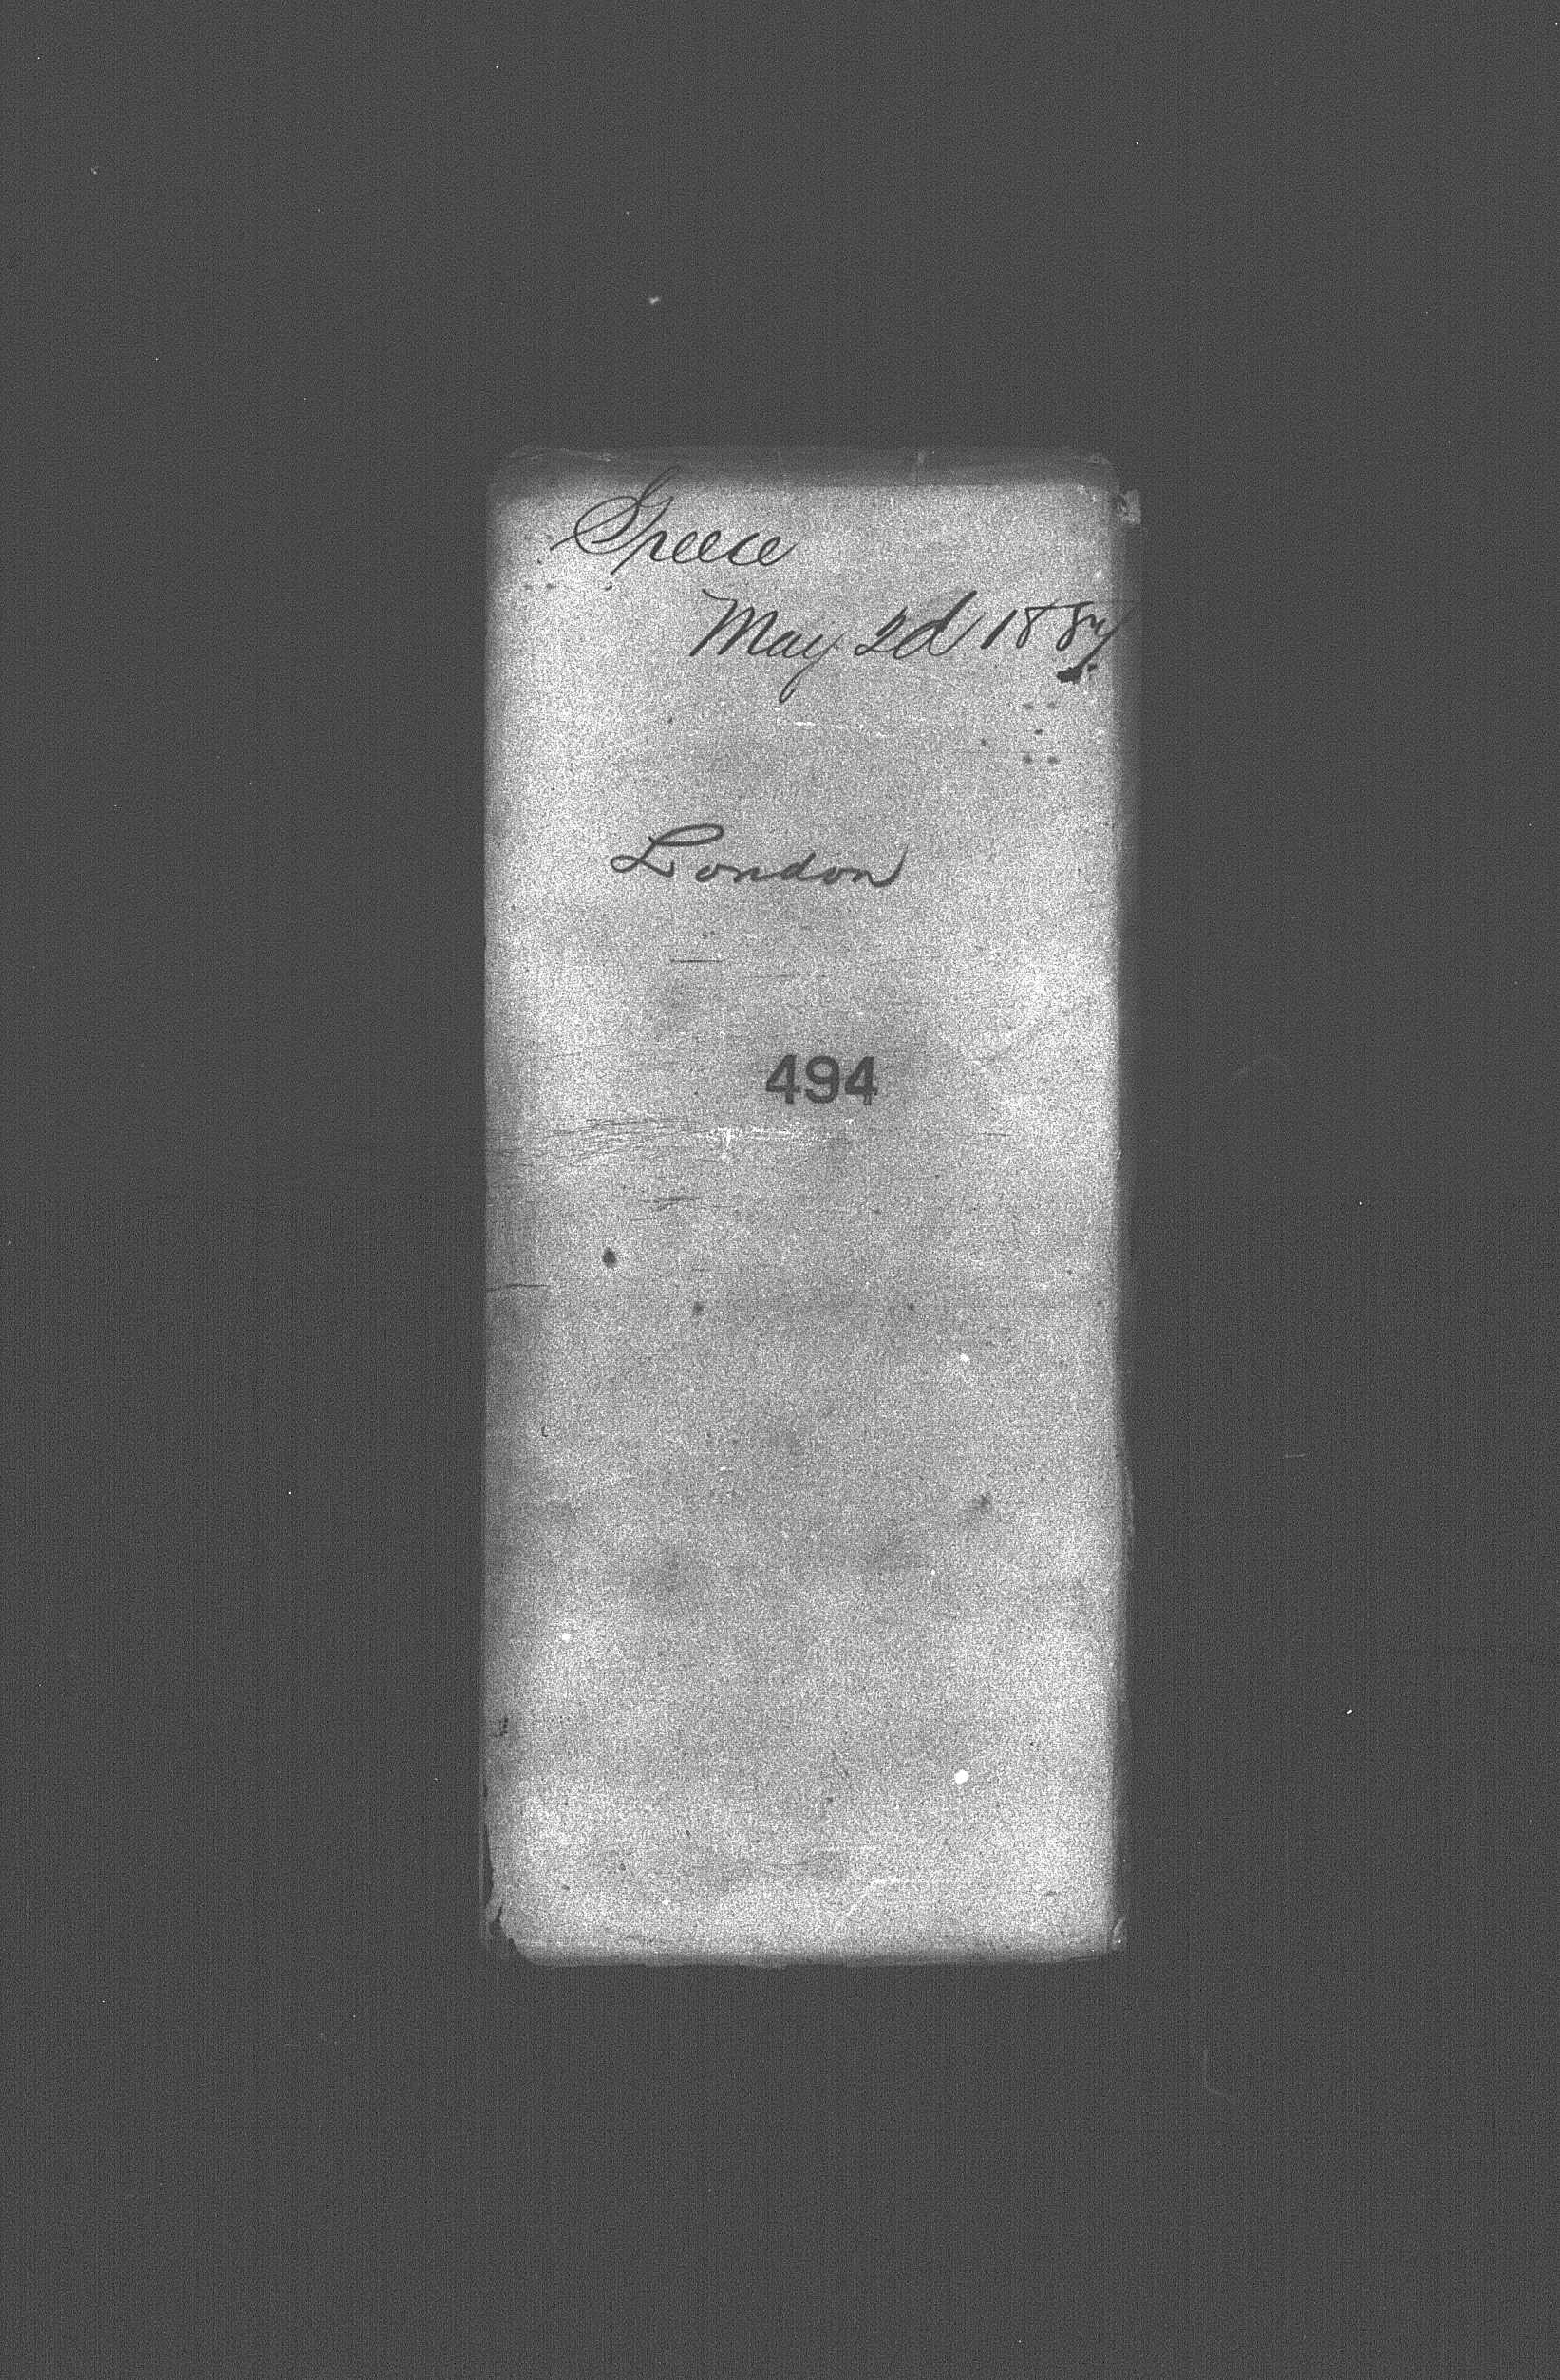 Greece
May 2d 1887
London
494